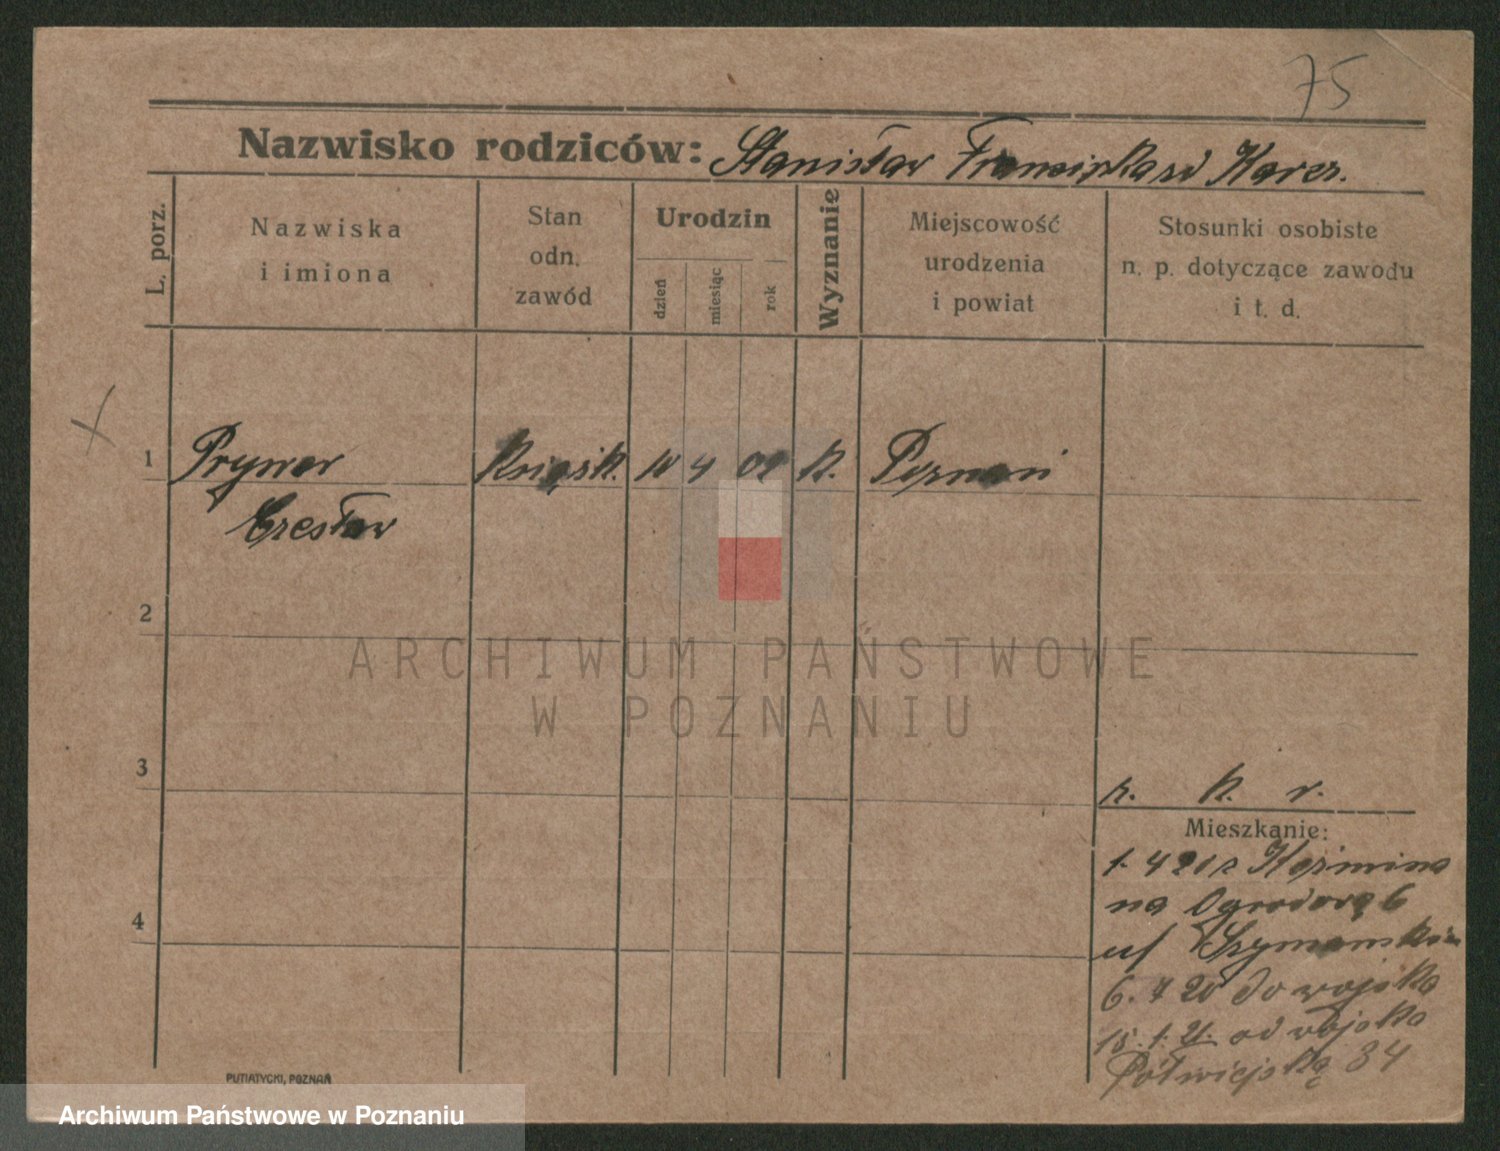 75
Nazwisko rodziców: Stanisław Franciszka zd Karcz.
L. porz.
Nazwiska
i imiona
Stan
odn.
zawód
Urodzin
dzień
miesiąc
rok
Wyznanie
Miejscowość
urodzenia
i powiat
Stosunki osobiste
n. p. dotyczące zawodu
i t. d.
1 Prymer Książk. 10 4 01 k. Poznań
Czesław
2
ARCHIWUM PAŃSTWOWE
W POZNANIU
3
k. r.
Mieszkanie:
1. 4 20 z
na Ogrodową 6
u/
6. 7 20 do wojska
15. 1. 21. od wojska
Półwiejską 34
4
PUTIATYCKI, POZNAŃ
Archiwum Państwowe w Poznaniu